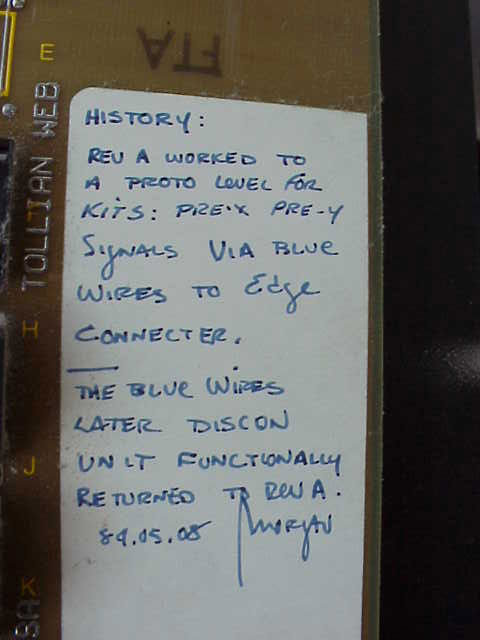 FTA
E
TOLLIAN WEB
H
J
K
SA
HISTORY:
REV A WORKED TO
A PROTO LEVEL FOR
KITS: PRE-X PRE-Y
SIGNALS VIA BLUE
WIRES TO Edge
CONNECTER.
THE BLUE WIRES
LATER DISCON
UNIT FUNCTIONALLY
RETURNED TO REV A.
89.05.05 Morgan